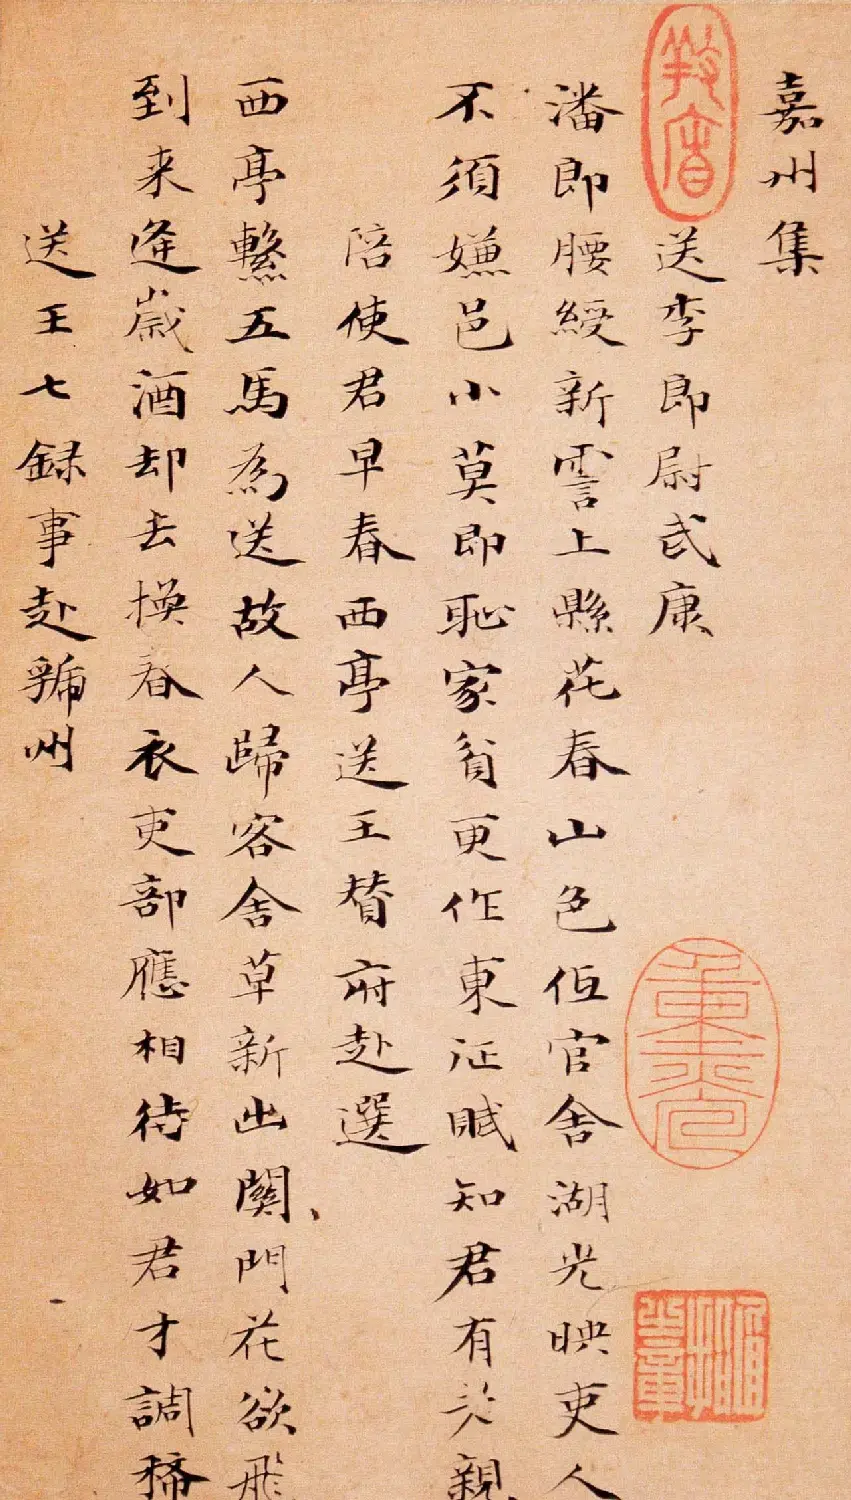 嘉州集
送李郎尉武康
潘郎腰綬新霅上縣花春山色低官舍湖光映吏人
不須嫌邑小莫即恥家貧更作東征賦知君有老親
陪使君早春西亭送王賛府赴選
西亭繫五馬為送故人歸客舍草新出關門花欲飛
到来逢歳酒却去換春衣吏部應相待如君才調稀
送王七録事赴虢州